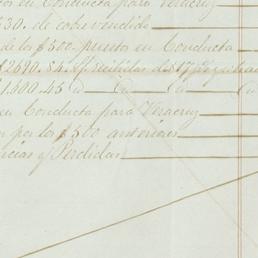 en Conducta para Veracruz
$30. de cobre vendido
de los $500. puestos en Conducta
$2690.84. recibidas de 17
1.500.45 D D D D
en Conducta para Veracruz
por los $500 anteriores
Perdidas